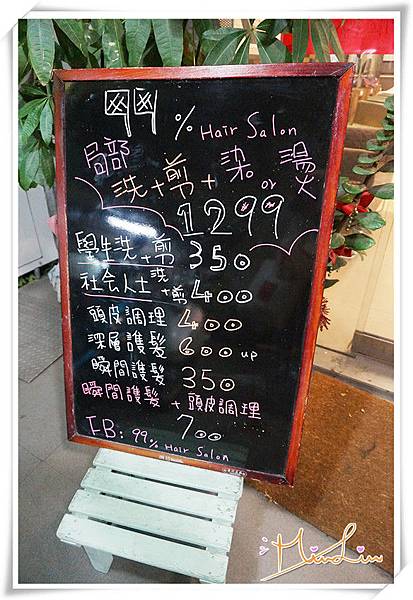 99% Hair Salon
局部
洗+剪+染or燙
1299
學生洗+剪 350
社会人士洗+剪 400
頭皮調理 400
深層護髮 600 up
瞬間護髮 350
瞬間護髮+頭皮調理
700
FB: 99% Hair Salon